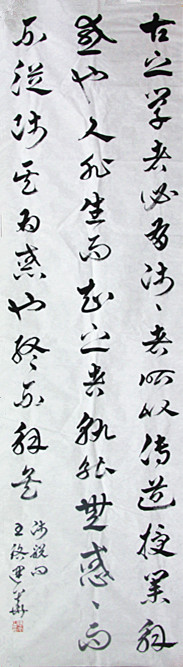 古之学者必有师々者所以传道授業解
惑也人非生而知之者孰能無惑々而
不從师其为惑也终不解矣
师說句